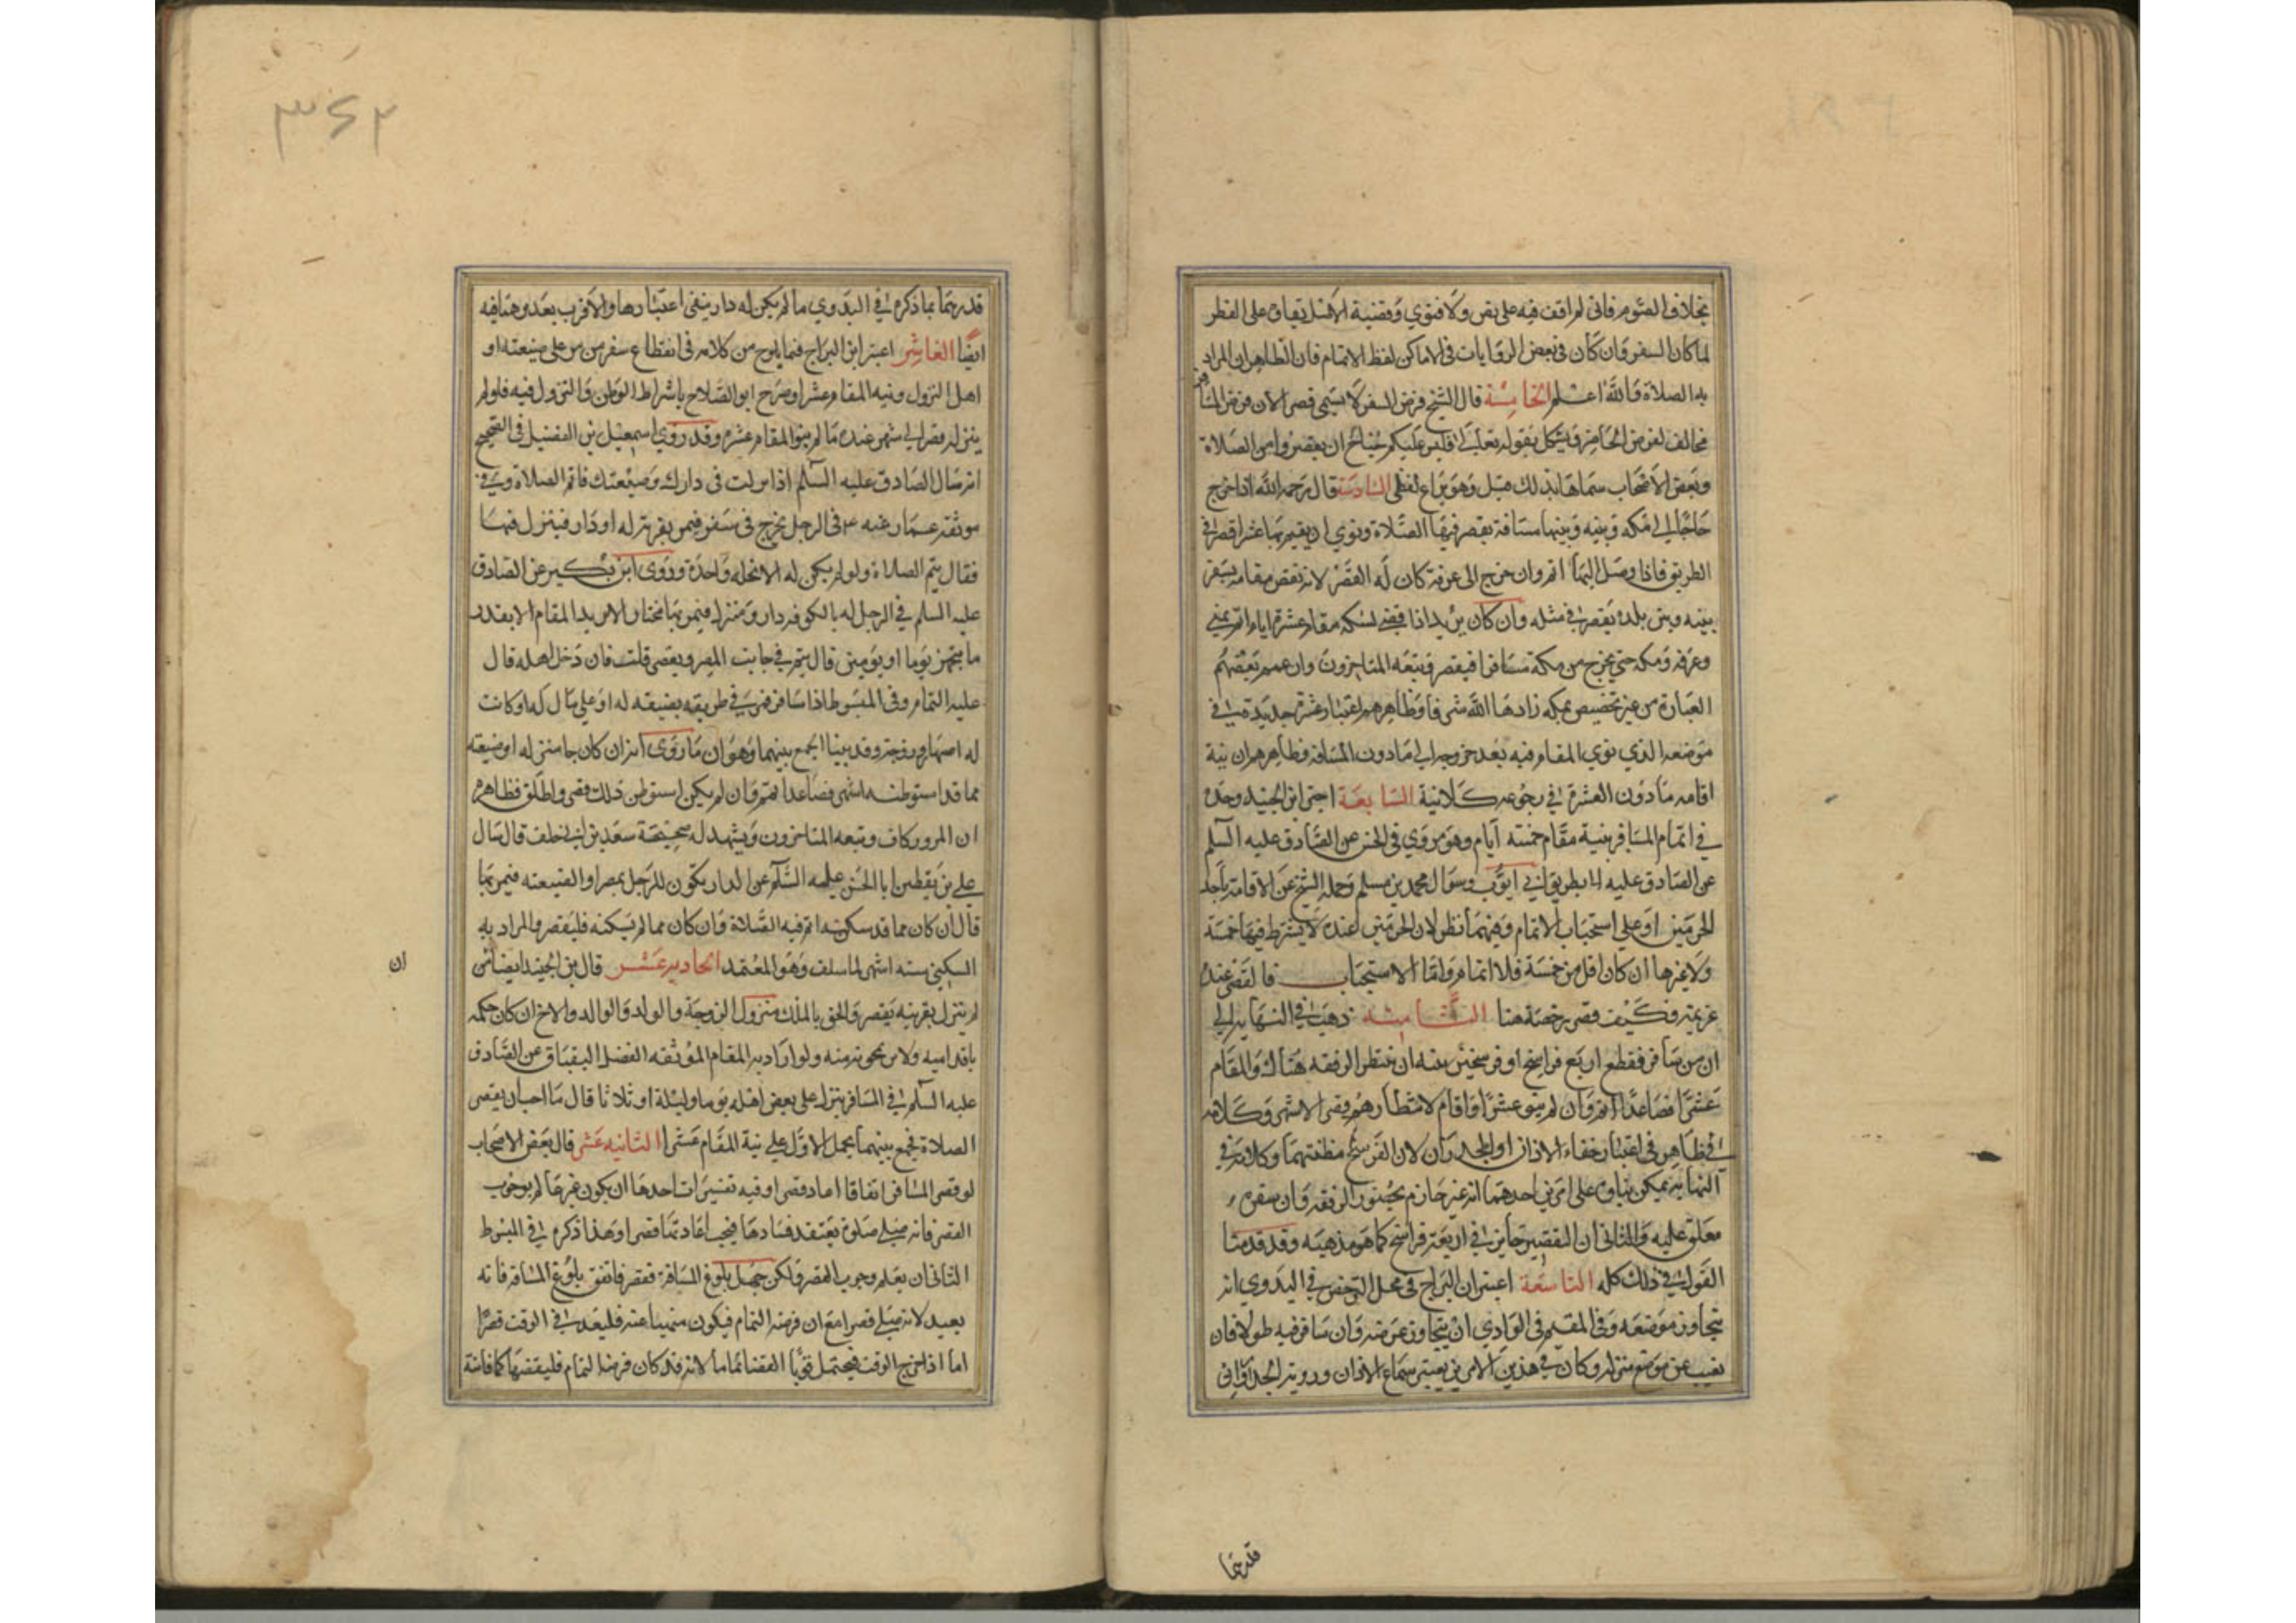 بخلاف الصوم فانى لم اقف فيه على نص ولا فتوي وقضية الاصل بقاؤه على الفطر
لما كان السفر وان كان فى بعض الروايات فى الاماكن لفظ الاتمام فان الظاهر ان المراد
به الصلاة والله اعلم الخامسة قال الشيخ فرض السفر لا يسمى قصرا لان فرض المسافر
مخالف لفرض الحاضر ويشكل بقوله تعالى فليس عليكم جناح ان يقصروا من الصلاة
وبعض الاصحاب سماها بذلك قيل وهو نزاع لفظي السادسة قال رحمه الله اذا خرج
حاجا الى مكه وبينه وبينها مسافة يقصر فيها الصلاة ونوي ان يقيم بها عشرا قصر في
الطريق فاذا وصل اليها اتم وان خرج الى عرفة كان له القصر لانه نقض مقامه بسفر
بينه وبين بلده يقصر في مثله وان كان يريد اذا قضى نسكه مقام عشرة ايام اتم بمنى
وعرفه ومكه حتى يخرج من مكة مسافرا فيقصر وتبعه المتاخرون وان عمم بعضهم
العبارة من غير تخصيص بمكه زادها الله شرفا وظاهرهم اعتبار عشرة جديدة في
موضعه الذي نوي المقام فيه بعد خروجه الى مادون المسافة فظاهرهم ان نية
اقامه مادون العشرة في رجوعه كلانية السابعة اجتزا ابن الجنيد وحده
في اتمام المسافر بنية مقام خمسه ايام وهو مروي فى الحسن عن الصادق عليه السلم
عن الصادق عليه بطريق ابي ايوب وسؤال محمد بن مسلم وحمله الشيخ عن الاقامة باحد
الحرمين او على استحباب الاتمام وفيهما نظر لان الحرمين عنده لا يشترط فيها خمسة
ولا غيرها ان كان اقل من خمسة فلا اتمام واما الاستحباب فالقصر عنده
عزيمة فكيف قصر رخصة هنا الثامنة ذهب في النهاية الى
ان من سافر فقطع اربع فراسخ او فرسخين بنيه ان ينتظر الرفقه هناك والمقام
عشرا فصاعدا اتم وان لم ينو عشرا واقام لانتظارهم قصر الاشهر وكلامه
في ظاهر فى اعتبار خفاء الاذان او الجدران لان الفرسخ مظنتهما وكلامه في
النهاية يمكن بناؤه على امرين احدهما انه غير جازم بحضور الرفقه وان سفره
معلق عليه والثانى ان التقصير جايز في اربعة فراسخ كما هو مذهبه وقد قدمنا
القول في ذلك كله التاسعة اعتبر ابن البراج فى محل الترخص في البدوي انه
يتجاوز موضعه وفى المقيم فى الوادي ان يتجاوز عرضه وان سافر فيه طولا فان
يغيب عن موضع منزله وكان في هذين الامرين يعتبر سماع الاذان وروية الجدران
قدرهما
٣٤٢
قدرهما بما ذكره في البدوي مالم يكن له دار ينفى اعتبارها والاقرب بعد وهنا فيه
ايضا العاشر اعتبر ابن البراج فيما يلوح من كلامه فى انقطاع سفر من مر على ضيعته او
اهل النزول ونيه المقام عشرا وصرح ابو الصلاح باشراط الوطن والنزول فيه فلو لم
ينزل قصر الى شهر عنده ما لم ينو المقام عشره وقد روى اسمعيل بن الفضيل فى الصحيح
انه سال الصادق عليه السلم اذا مررت فى دارك وضيعتك فاتم الصلاة وفي
موثقه عمار عنه ع فى الرجل يخرج فى سفر فيمر بقرية له او دار فينزل فيها
فقال يتم الصلاة ولو لم يكن له الا نخله واحدة وروى ابن بكير عن الصادق
عليه السلم في الرجل له بالكوفه دار ومنزل فيمر بها مجتازا لا يريد المقام الا بقدر
ما يتجهز يوما او يومين قال يتم في جانب المصر ويقصر قلت فان دخل اهله قال
عليه التمام وفى المبسوط اذا سافر فمر في طريقه بضيعه له او على مال له او كانت
له اصهار وزوجة وقد بينا الجمع بينهما وهو ان ما روى انه ان كان جا منزله او ضيعته
مما قد استوطنه ستة اشهر فصاعدا تمم وان لم يكن استوطن ذلك قصر واطلق فظاهره
ان المرور كاف وتبعه المتاخرون ويشهد له صحيحة سعد بن ابي خلف قال سال
علي بن يقطين ابا الحسن عليه السلم عن الدار يكون للرجل بمصر او الضيعته فيمر بها
قال ان كان مما قد سكنه اتم فيه الصلاة وان كان مما لم يسكنه فليقصر والمراد به
السكنى ستة اشهر لما سلف وهو المعتمد الحادية عشر قال ابن الجنيد ايضا من
ان
لم ينزل بقريته يقصر والحق بالملك منزل الزوجة والولد والوالد والاخ ان كان حكمه
نافذا فيه ولا يزعجونه منه ولو اراد به المقام الموثقه الفضل البقباق عن الصادق
عليه السلم في المسافر ينزل على بعض اهله يوما وليلة او ثلاثا قال ما احب ان يقصر
الصلاة فجمع بينهما بحمل الاول على نية المقام عشرا الثانيه عشر قال بعض الاصحاب
لو قصر المسافر اتفاقا اعاد قصرا وفيه تفسيرات احدها ان يكون غير عالم بوجوب
القصر فانه صلى صلوة يعتقد فسادها فيجب اعادتها قصرا وهذا ذكره في المبسوط
الثانى ان يعلم وجوب القصر ولكن جهل بلوغ المسافة فقصر فاتفق بلوغ المسافة فانه
يعيد لانه صلى قصرا مع ان فرضه التمام فيكون منهيا عنه فليعد في الوقت قصرا
اما اذا خرج الوقت فيحتمل قويا القضا تماما لانه قد كان فرضا لتمام فليقضها كما فاتته